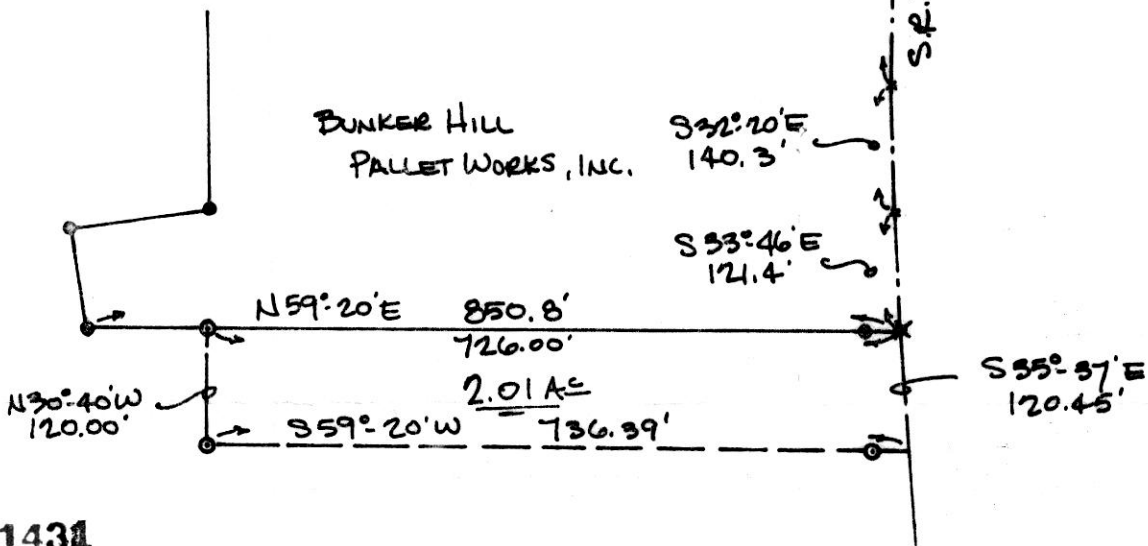 S.R.
BUNKER HILL
PALLET WORKS, INC.
S32°-20'E
140.3'
S33°-46'E
121.4'
N59°-20'E 850.8'
726.00'
2.01 Ac
N30°-40'W
120.00'
S59°-20'W 736.39'
S35°-37'E
120.45'
1431